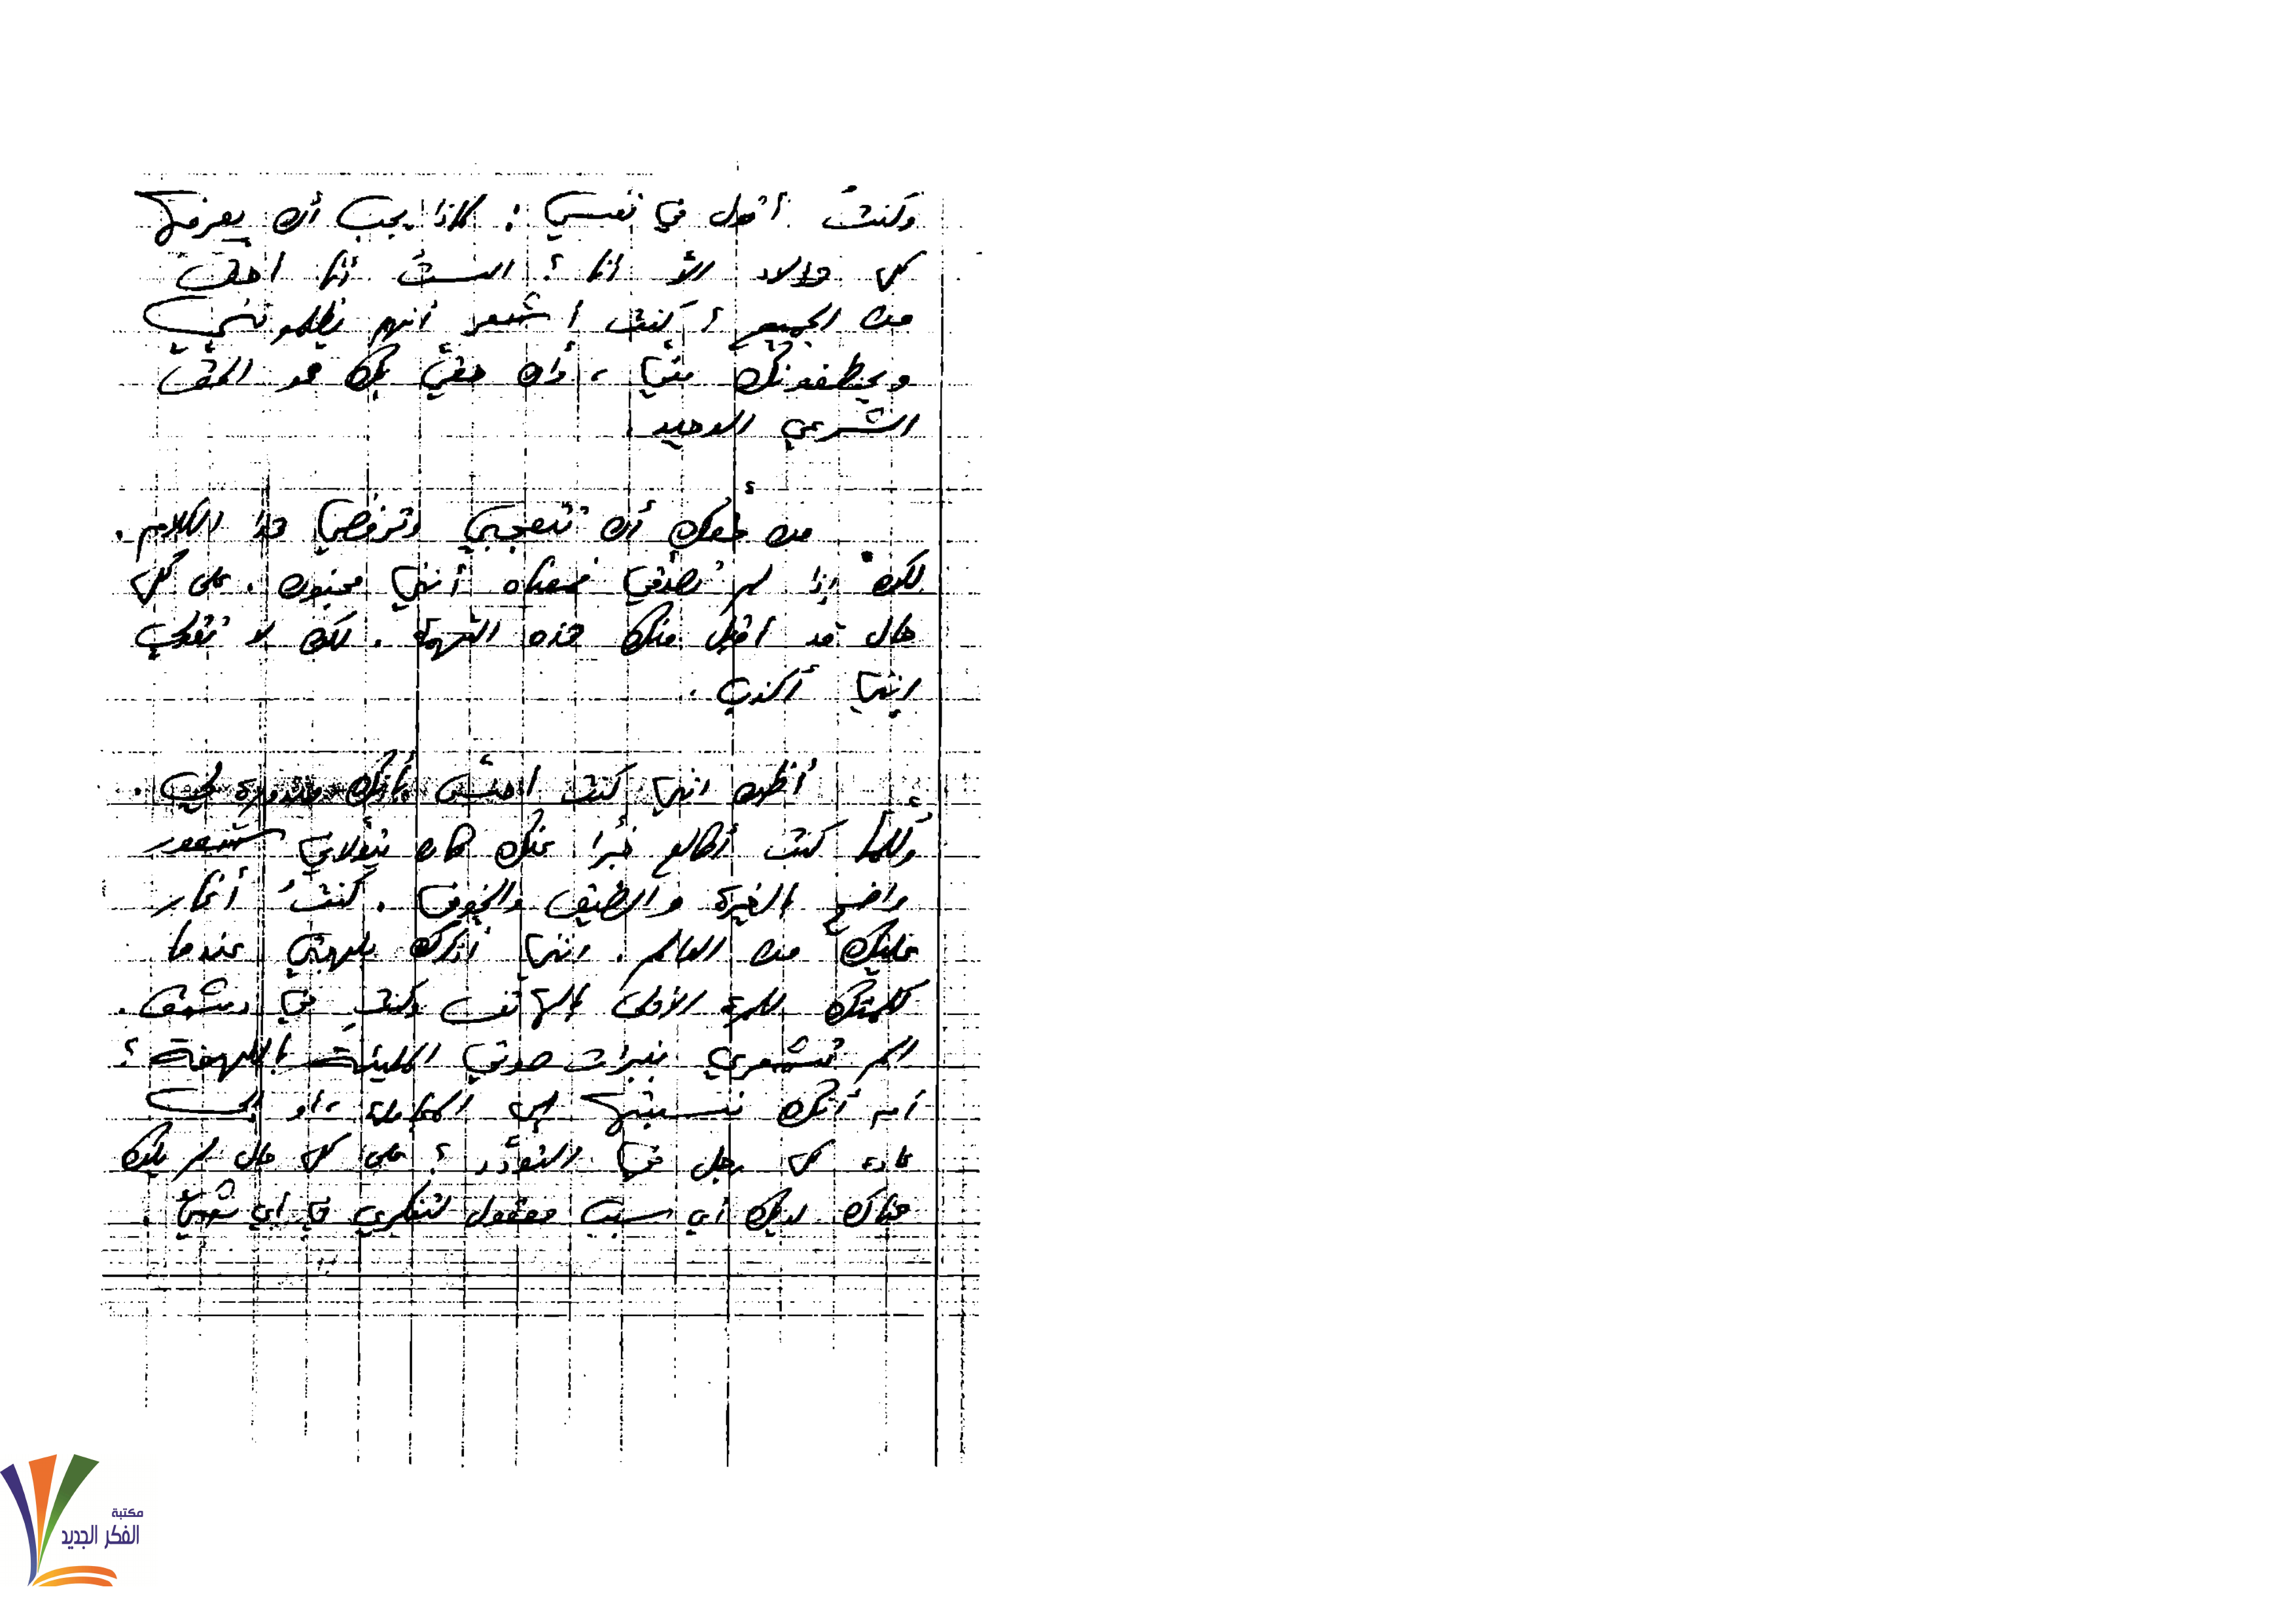 وكنتُ أقول في نفسي : لماذا يجب أن يعرفها
كل هؤلاء الاّ أنا ؟ ألستُ أنا أحق
من الجميع ؟ كنت أشعر أنهم يظلمونني
ويخطفونك منّي ، وان حقّي بك هو الحقّ
الشرعي الوحيد .
من حقك أن تتعجبي وترفضي هذا الكلام .
لكن إذا لم تصدقي فمعناه أنني مجنون . على كل
حال قد أقبل منك هذه التهمة . لكن لا تقولي
انني أكذب .
أظن انني كنت أحسّ بأنك منذورة لي .
وكلما كنت أطالع خبرا عنك كان يتولاني شعور
واضح بالغيرة والضيق والخوف . كنتُ أغار
عليك من العالم . انني أذكر لهجتي عندما
كلمتك للمرة الأولى بالهاتف وكنتِ في دمشق .
الم تشعري بنبرات صوتي المليئة باللهفة ؟
أم أنك نسبتها إلى المجاملة ، أو إلى
عادة كل رجل في التودّد ؟ على كل حال لم يكن
هناك لديك أي سبب معقول لتفكري في أي شيء .
مكتبة
الفكر الجديد